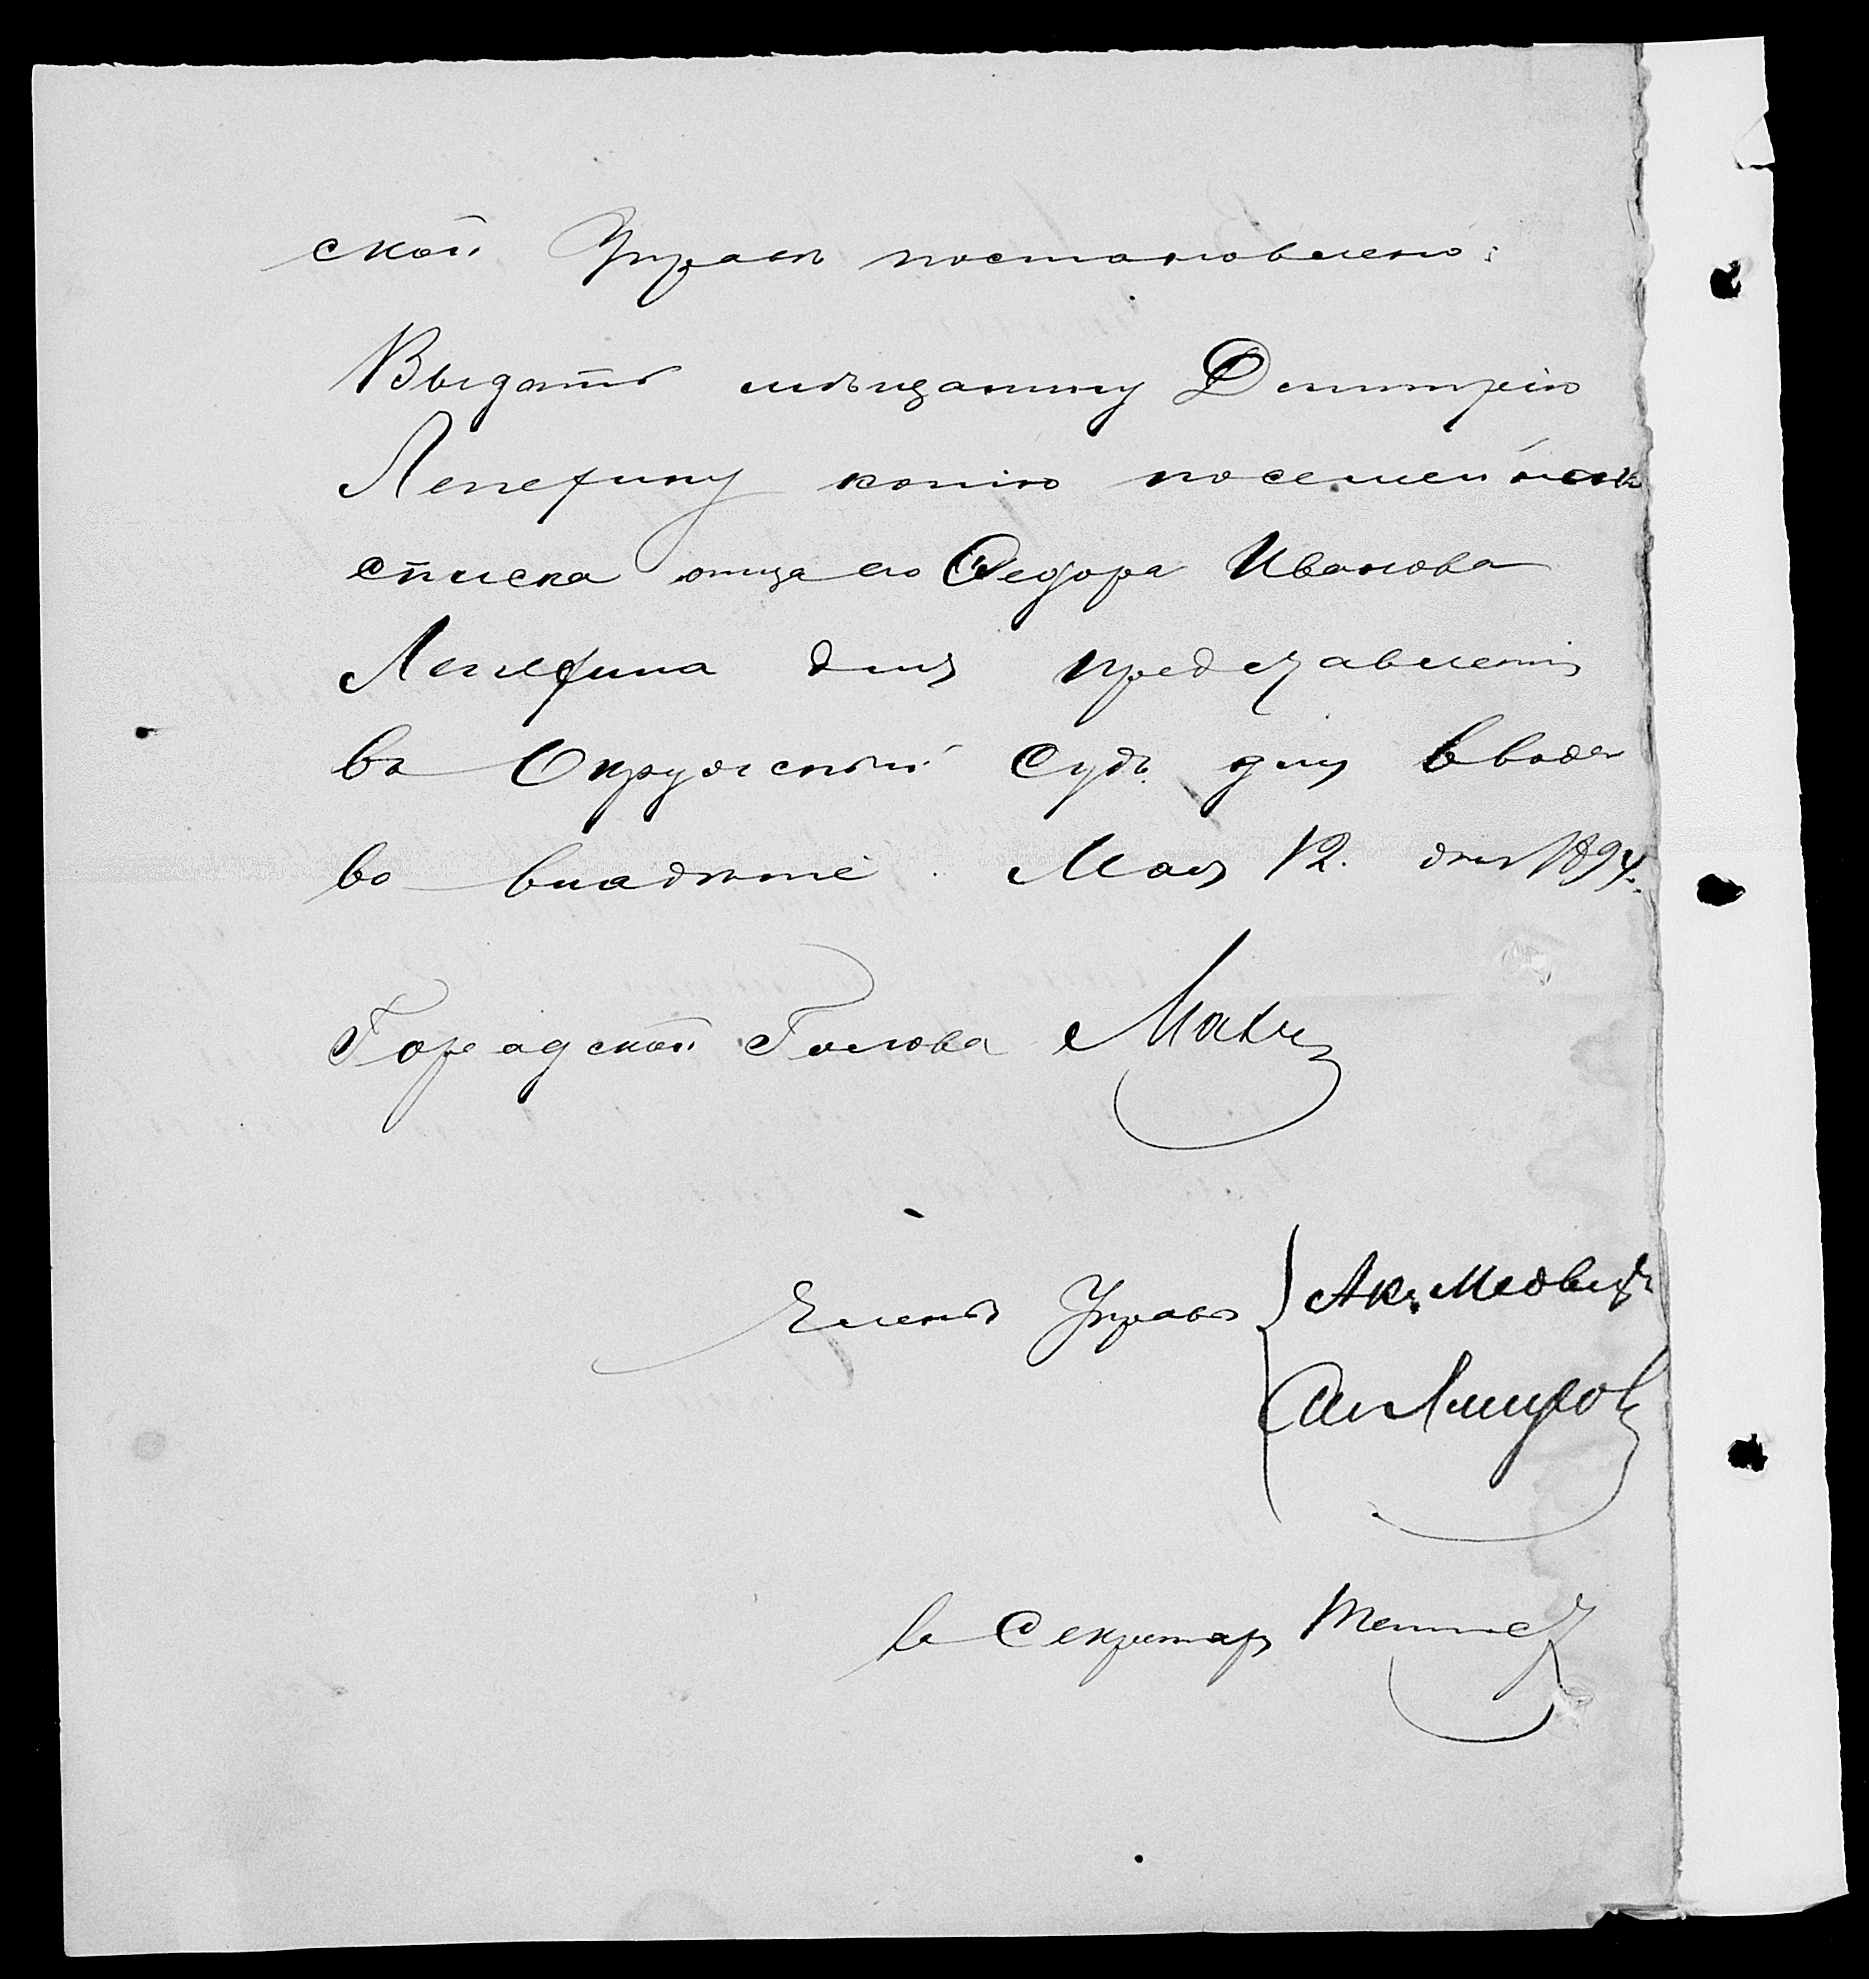 ской Управѣ постановлено:
Выдать мѣщанину Димитрію
Лепехину копію посемейнаго
списка отца его Федора Иванова
Лепехина для представленія
въ Окружный Судъ для ввода
во владѣніе. Мая 12. дня 1894.
Городской Голова
Члены Управы Ак. Медвед
Секретарь